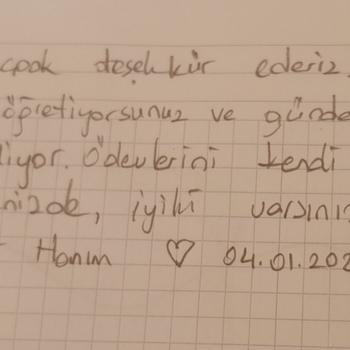 çook teşekkür ederiz.
öğretiyorsunuz ve günde
liyor. Ödevlerini kendi
nizde, iyiki varsını
Hanım ♡ 04.01.202